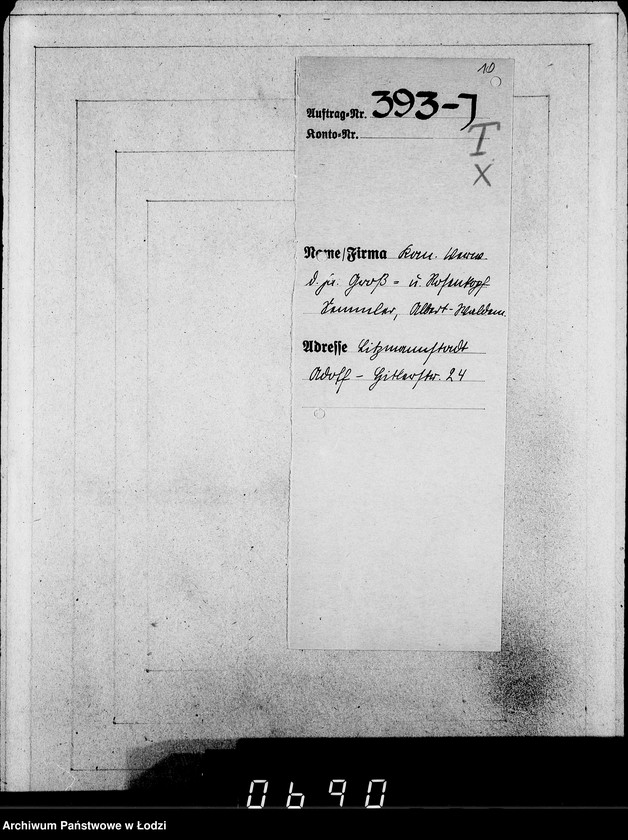 10
Auftrag=Nr. 393-J
Konto=Nr.
T
X
Name/Firma Kom. Verw.
d. jü. Groß= u. Rosenkopf
Semmler, Albert-Waldem.
Adresse Litzmannstadt
Adolf-Hitlerstr. 24
0690
Archiwum Państwowe w Łodzi